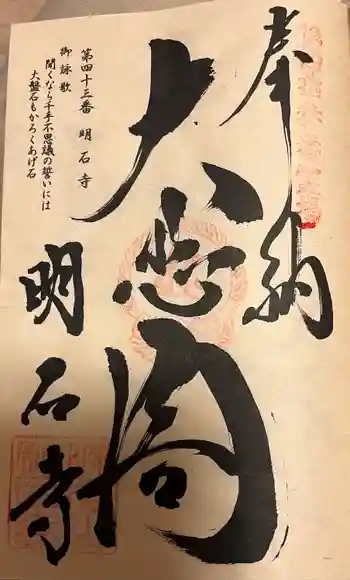 奉納
大悲閣
第四十三番 明石寺
御詠歌
聞くならく千手不思議の誓いには
大盤石もかろくあげ石
明石寺